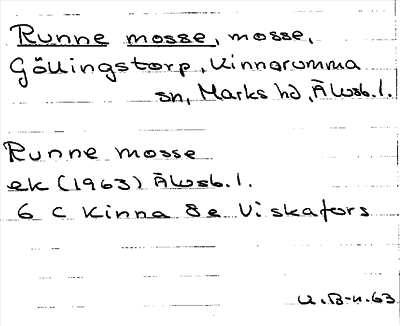 Runne mosse, mosse,
Göllingstorp, Kinnarumma
sn, Marks hd, Älvsb. l.
Runne mosse
ek (1963) Älvsb. l.
6 C Kinna 8 e Viskafors